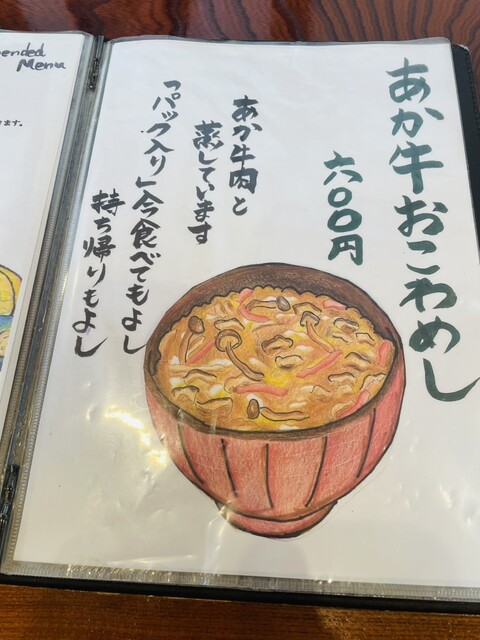 あか牛おこわめし
六〇〇円
あか牛肉と
蒸しています
「パック入り」今食べてもよし
持ち帰りもよし
ended
Menu
ます。